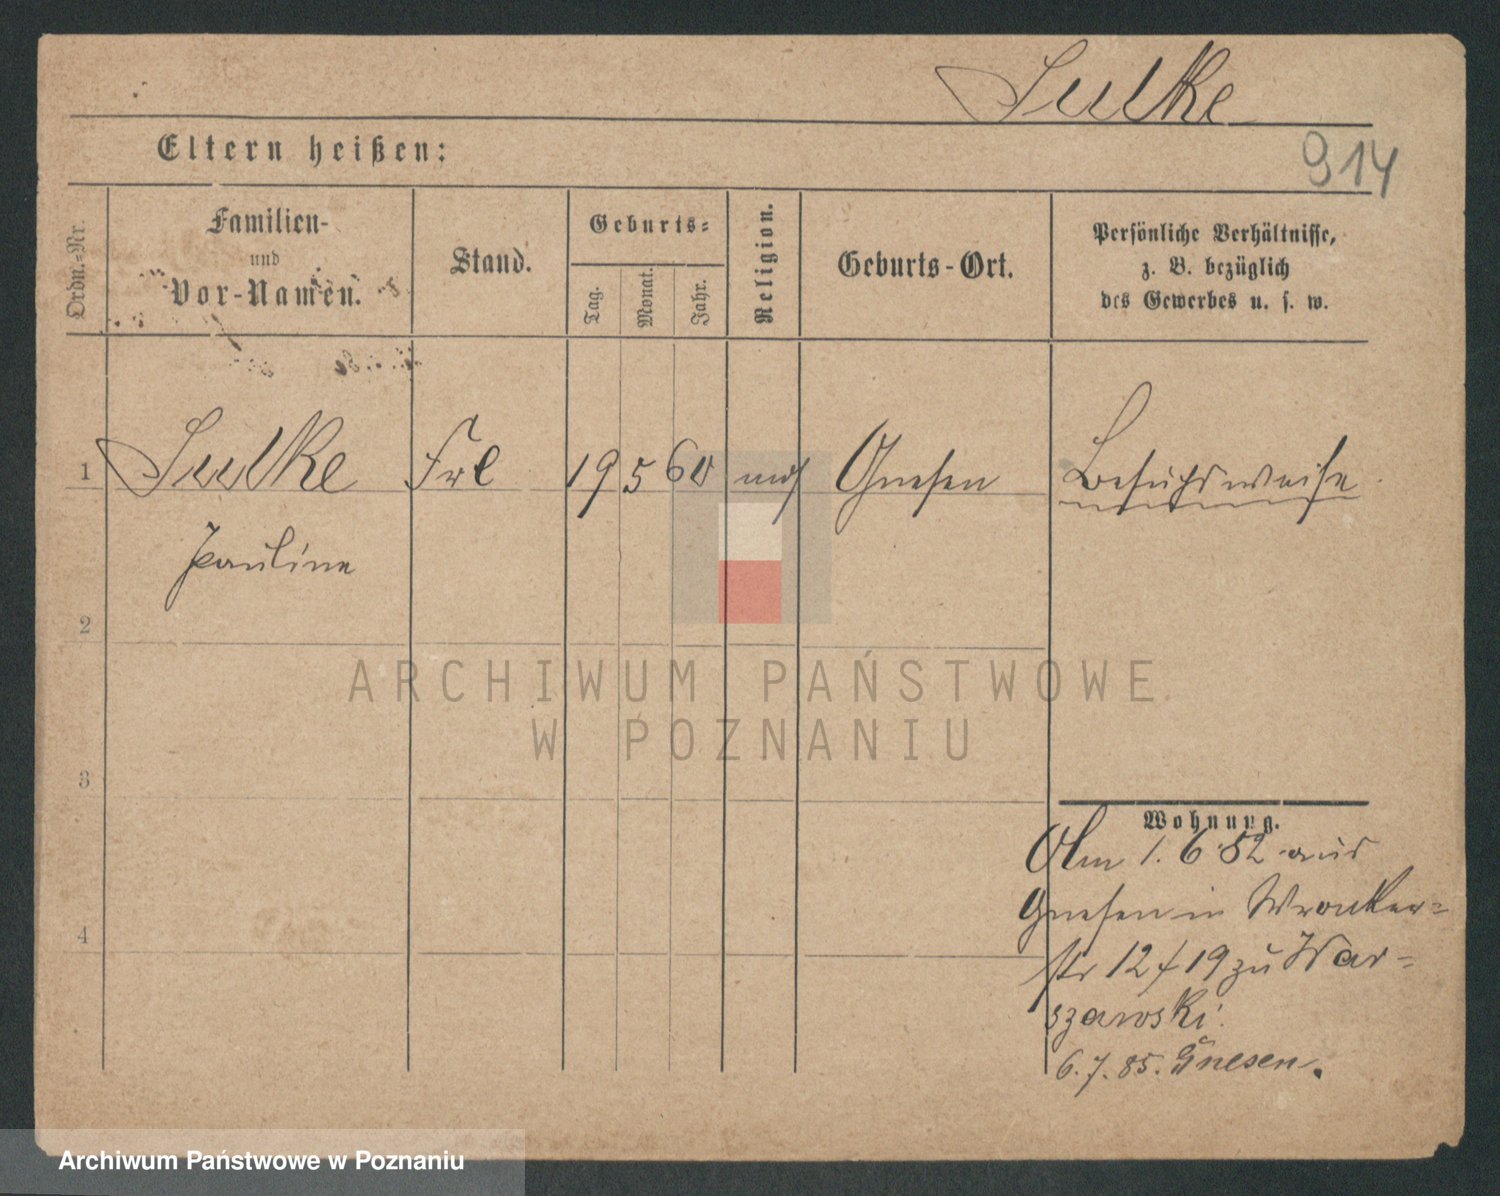 Sulke
914
Eltern heißen:
Ordn.-Nr.
Familien-
und
Vor-Namen.
Stand.
Geburts-
Tag.
Monat.
Jahr.
Religion.
Geburts-Ort.
Persönliche Verhältnisse,
z. B. bezüglich
des Gewerbes u. s. w.
1 Sulke Frl 19 5 60 mos Gnesen Besuchsweise
Pauline
2
3
4
Wohnung.
1. 6 82 aus
Gnesen in Wronker-
str 12 / 19 zu War-
szawski.
6. 7. 85. Gnesen.
ARCHIWUM PAŃSTWOWE
W POZNANIU
Archiwum Państwowe w Poznaniu